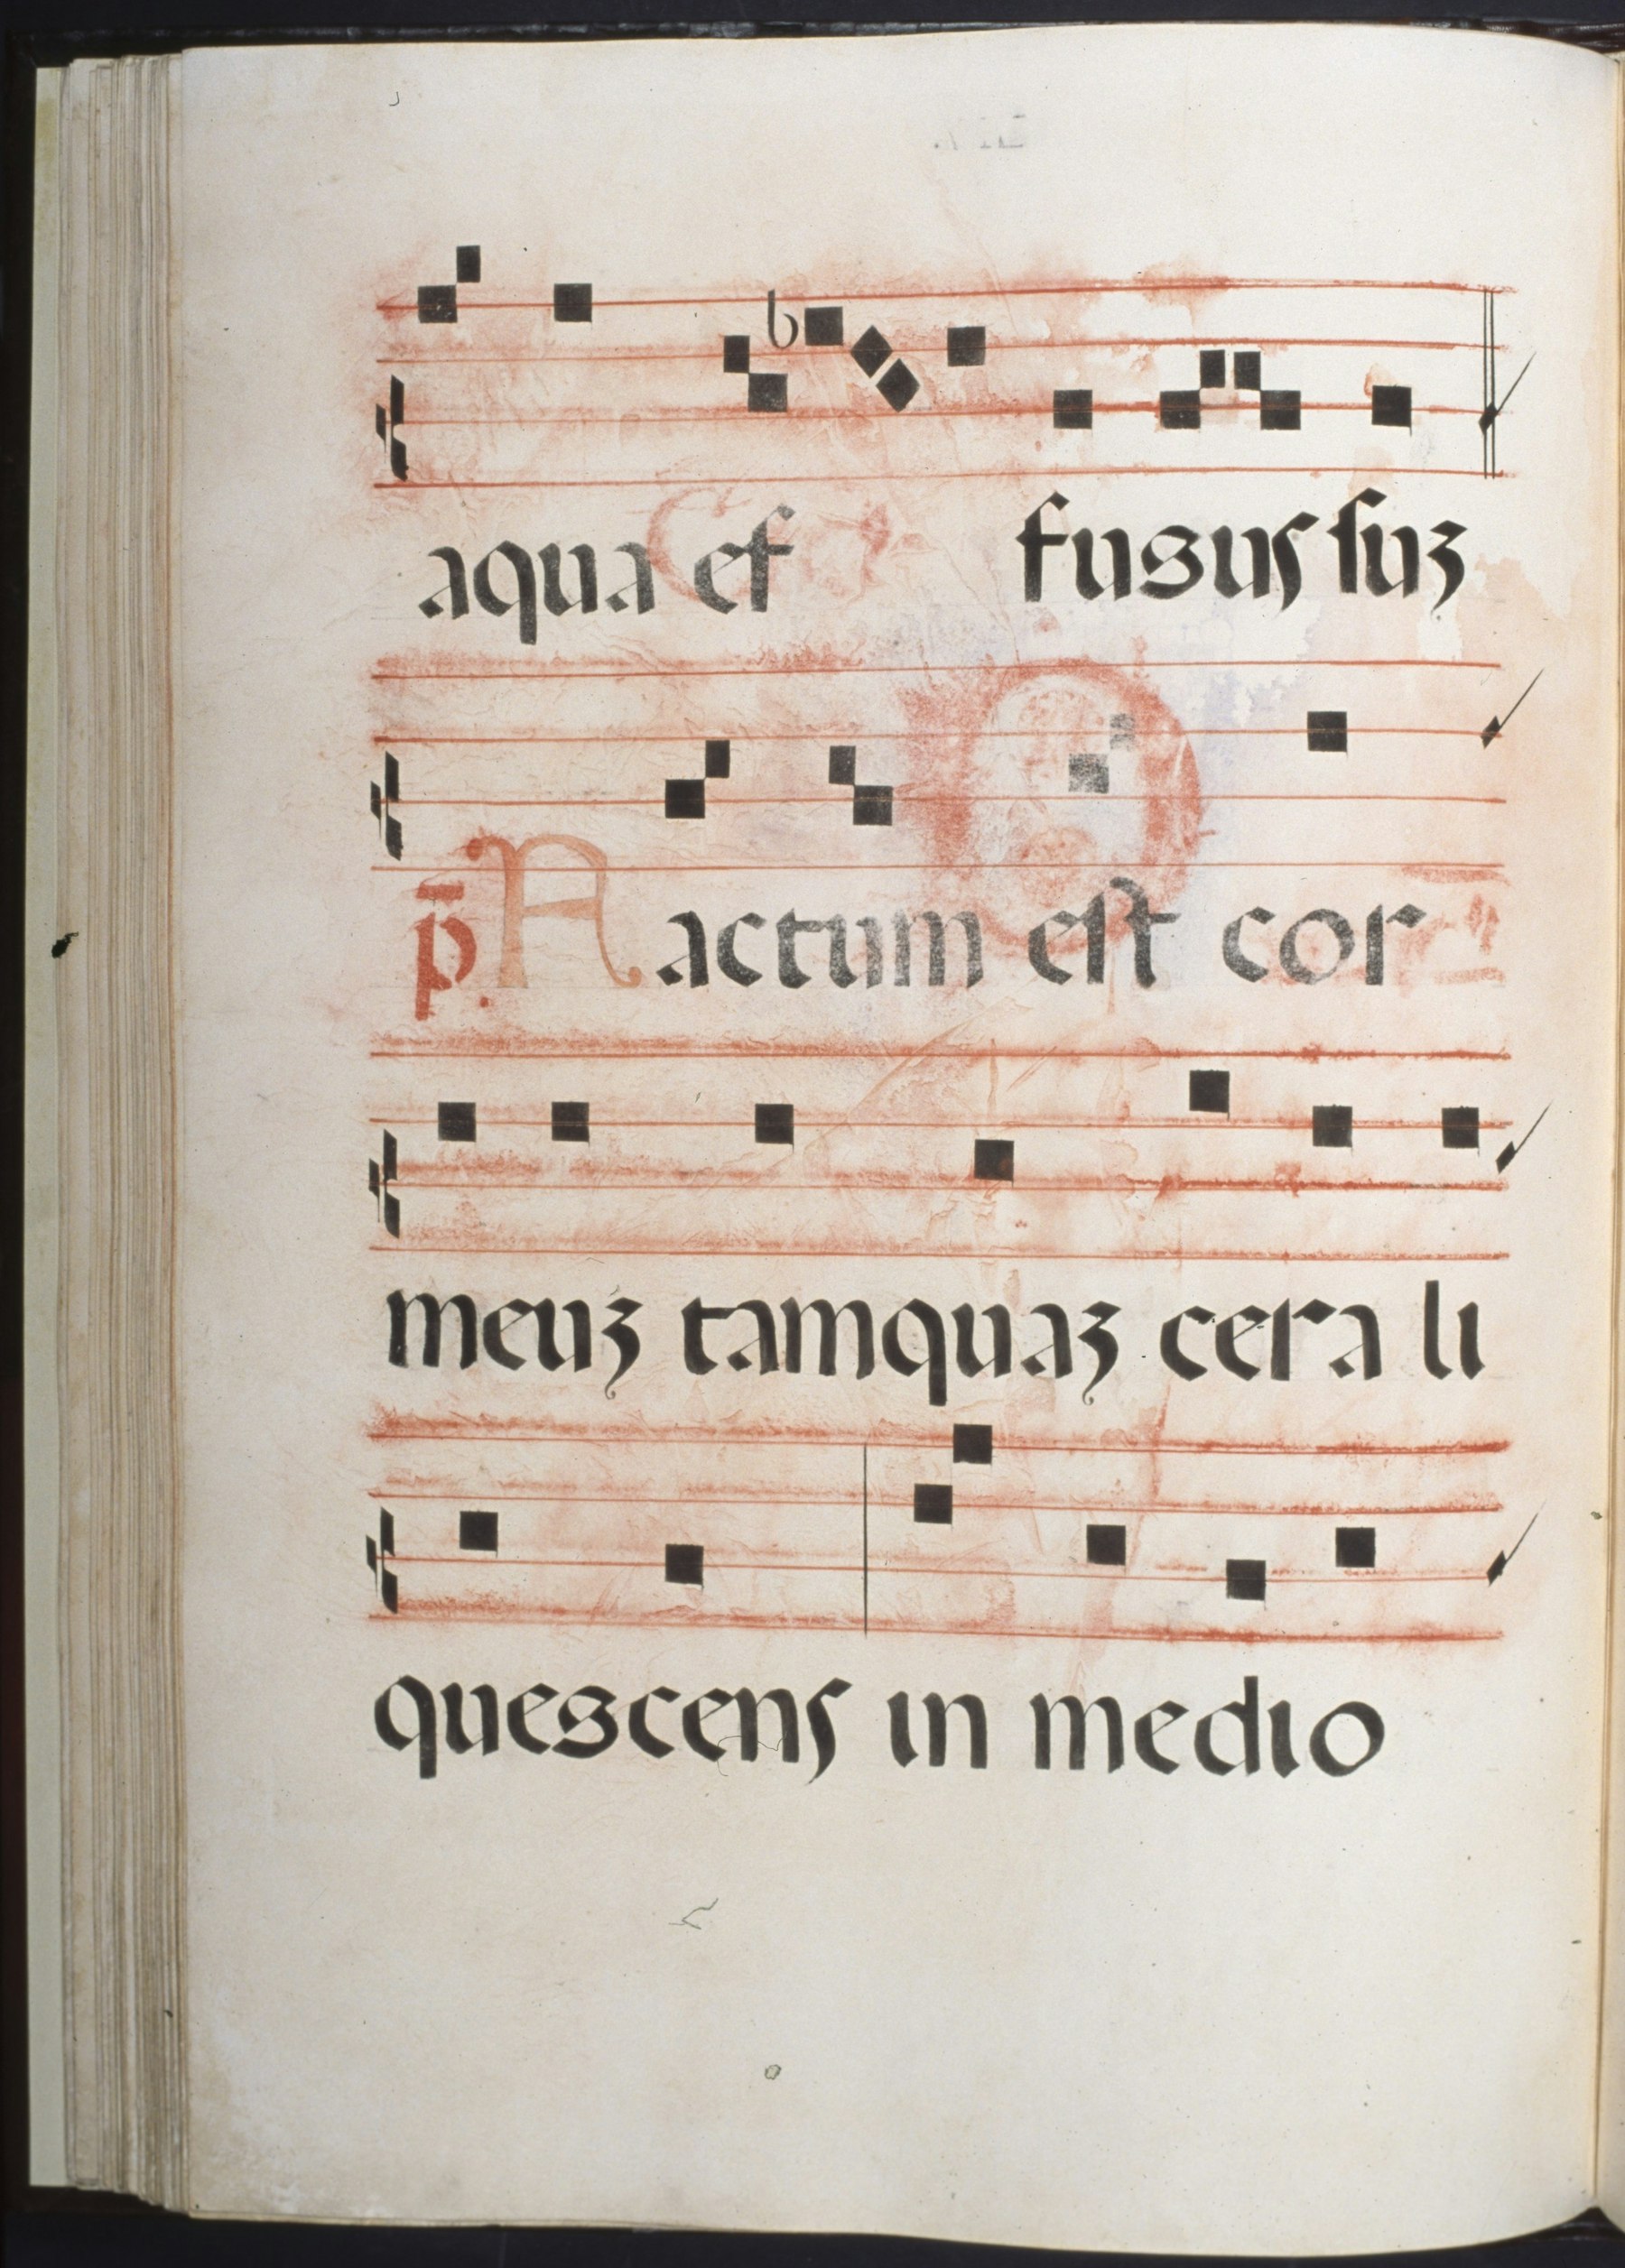 aqua ef fusus ſuʒ
p̄. Aactum eſt cor
meuʒ tamquaʒ cera li
quescens in medio